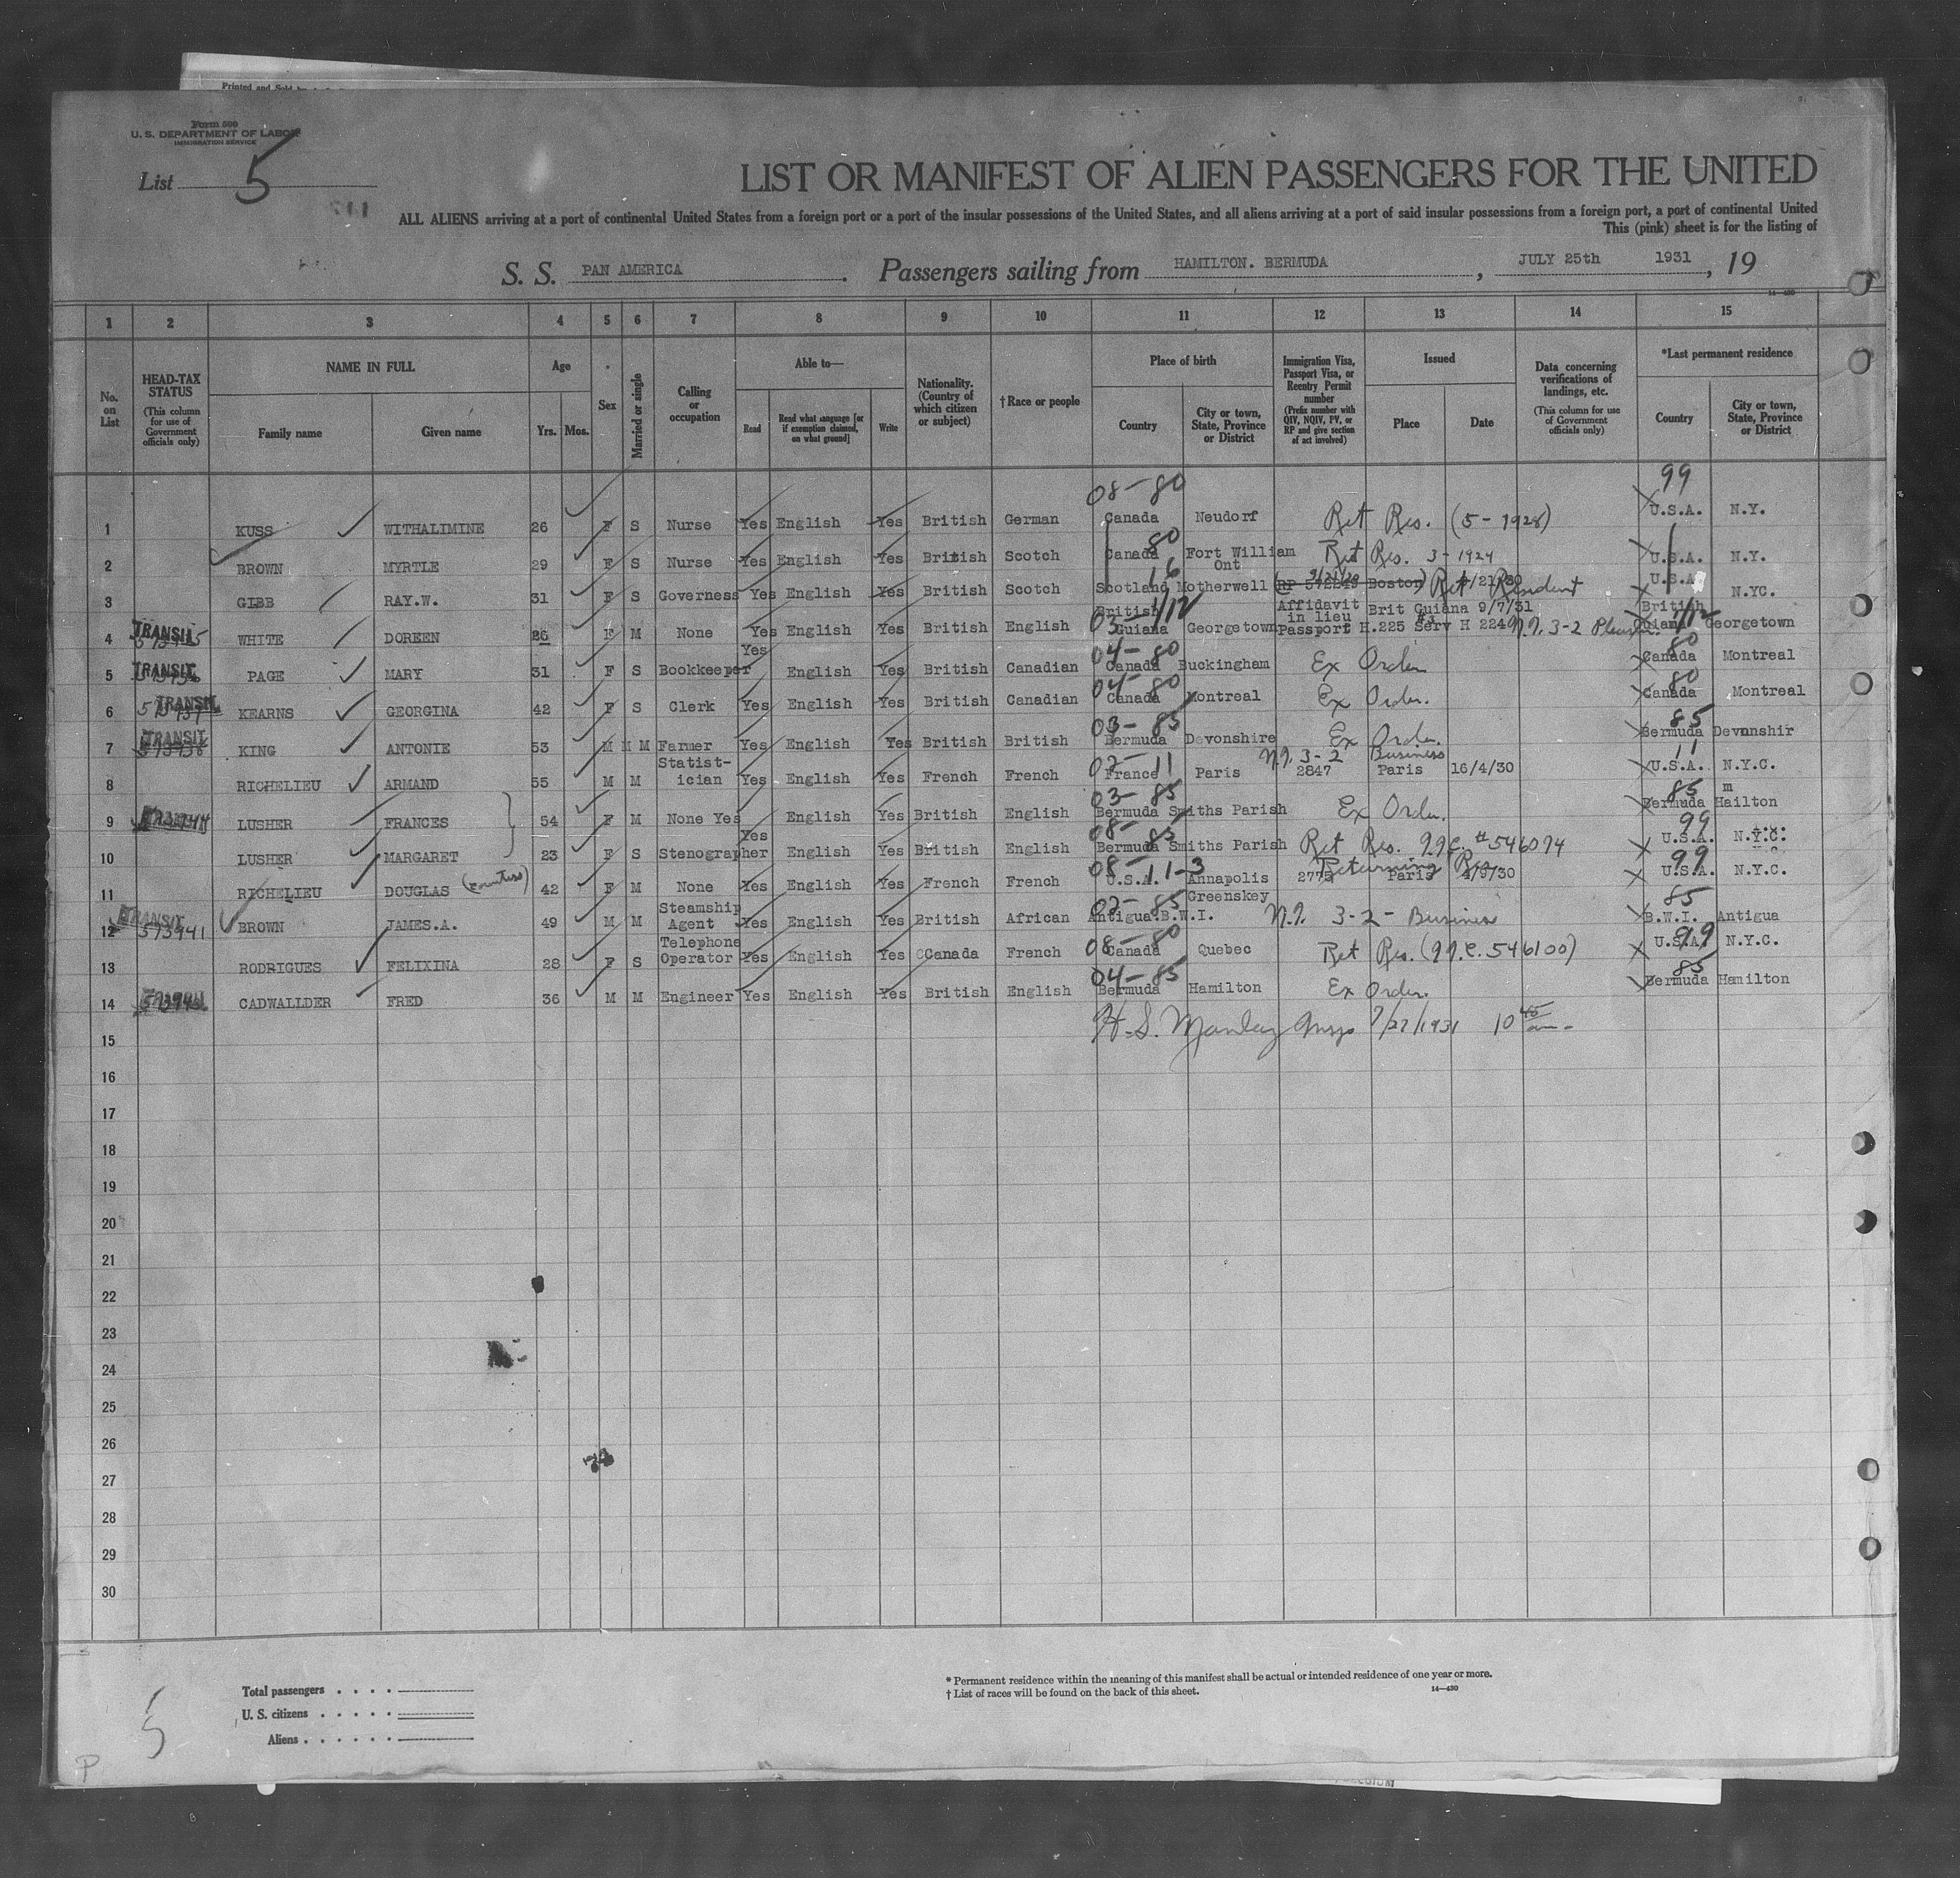 Printed and Sold by
Form 500
U. S. DEPARTMENT OF LABOR
IMMIGRATION SERVICE
List 5
LIST OR MANIFEST OF ALIEN PASSENGERS FOR THE UNITED
ALL ALIENS arriving at a port of continental United States from a foreign port or a port of the insular possessions of the United States, and all aliens arriving at a port of said insular possessions from a foreign port, a port of continental United
This (pink) sheet is for the listing of
S. S. PAN AMERICA. Passengers sailing from HAMILTON. BERMUDA, JULY 25th 1931, 19
14—430
1 2 3 4 5 6 7 8 9 10 11 12 13 14 15
No. on List
HEAD-TAX STATUS (This column for use of Government officials only)
NAME IN FULL
Family name Given name
Age
Yrs. Mos.
Sex
Married or single
Calling or occupation
Able to—
Read
Read what language [or if exemption claimed, on what ground]
Write
Nationality. (Country of which citizen or subject)
†Race or people
Place of birth
Country
City or town, State, Province or District
Immigration Visa, Passport Visa, or Reentry Permit number (Prefix number with QIV, NQIV, PV, or RP and give section of act involved)
Issued
Place Date
Data concerning verifications of landings, etc. (This column for use of Government officials only)
*Last permanent residence
Country
City or town, State, Province or District
08-80 99
1 KUSS WITHALIMINE 26 F S Nurse Yes English Yes British German Canada Neudorf Ret Res. (5-1928) U.S.A. N.Y.
80
2 BROWN MYRTLE 29 F S Nurse Yes English Yes British Scotch Canada Fort William Ont Ret Res. 3-1924 U.S.A. N.Y.
16
3 GIBB RAY.W. 31 F S Governess Yes English Yes British Scotch Scotland Motherwell RP 572249 Boston Ret Resident U.S.A. N.YC.
4 TRANSIT WHITE DOREEN 26 F M None Yes English Yes British English British Guiana Georgetown Affidavit in lieu Passport Brit Guiana 9/7/31 H.225 Serv H 2249 3-2 British Guiana Georgetown
04-80 80
5 TRANSIT PAGE MARY 31 F S Bookkeeper Yes English Yes British Canadian Canada Buckingham Ex Order Canada Montreal
04-80 80
6 TRANSIT KEARNS GEORGINA 42 F S Clerk Yes English Yes British Canadian Canada Montreal Ex Order. Canada Montreal
03-85 85
7 TRANSIT KING ANTONIE 53 M M M Farmer Yes English Yes British British Bermuda Devonshire Ex Order. Bermuda Devonshir
02-11 3-2 Business 11
8 RICHELIEU ARMAND 55 M M Statist-ician Yes English Yes French French France Paris 2847 Paris 16/4/30 U.S.A. N.Y.C.
03-85 85 m
9 LUSHER FRANCES 54 F M None Yes English Yes British English Bermuda Smiths Parish Ex Order. Bermuda Hailton
08-85 99
10 LUSHER MARGARET 23 F S Stenographer Yes English Yes British English Bermuda Smiths Parish Ret Res. #546094 U.S.A. N.Y.C.
08-11-3 Returning Res 99
11 RICHELIEU DOUGLAS (Countess) 42 F M None Yes English Yes French French U.S.A. Annapolis 2775 Paris 4/9/30 U.S.A. N.Y.C.
02-85 85
12 TRANSIT 573941 BROWN JAMES.A. 49 M M Steamship Agent Yes English Yes British African Antigua.B.W.I. Greenskey 3-2- Business B.W.I. Antigua
08-80 99
13 RODRIGUES FELIXINA 28 F S Telephone Operator Yes English Yes CCanada French Canada Quebec Ret Res. (546100) U.S.A. N.Y.C.
04-85 85
14 CADWALLDER FRED 36 M M Engineer Yes English Yes British English Bermuda Hamilton Ex Order. Bermuda Hamilton
15 H.S. 7/27/1931 10 45 am
16
17
18
19
20
21
22
23
24
25
26
27
28
29
30
Total passengers . . . .
U. S. citizens . . . . .
Aliens . . . . . .
* Permanent residence within the meaning of this manifest shall be actual or intended residence of one year or more.
† List of races will be found on the back of this sheet.
14—430
5
P